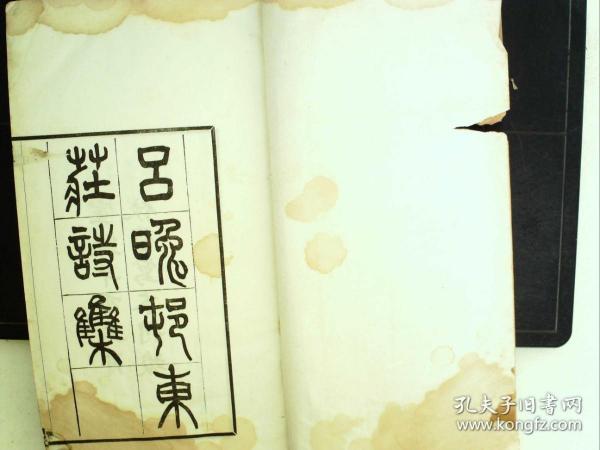 呂晚邨東
莊詩集
孔夫子旧书网
www.kongfz.com